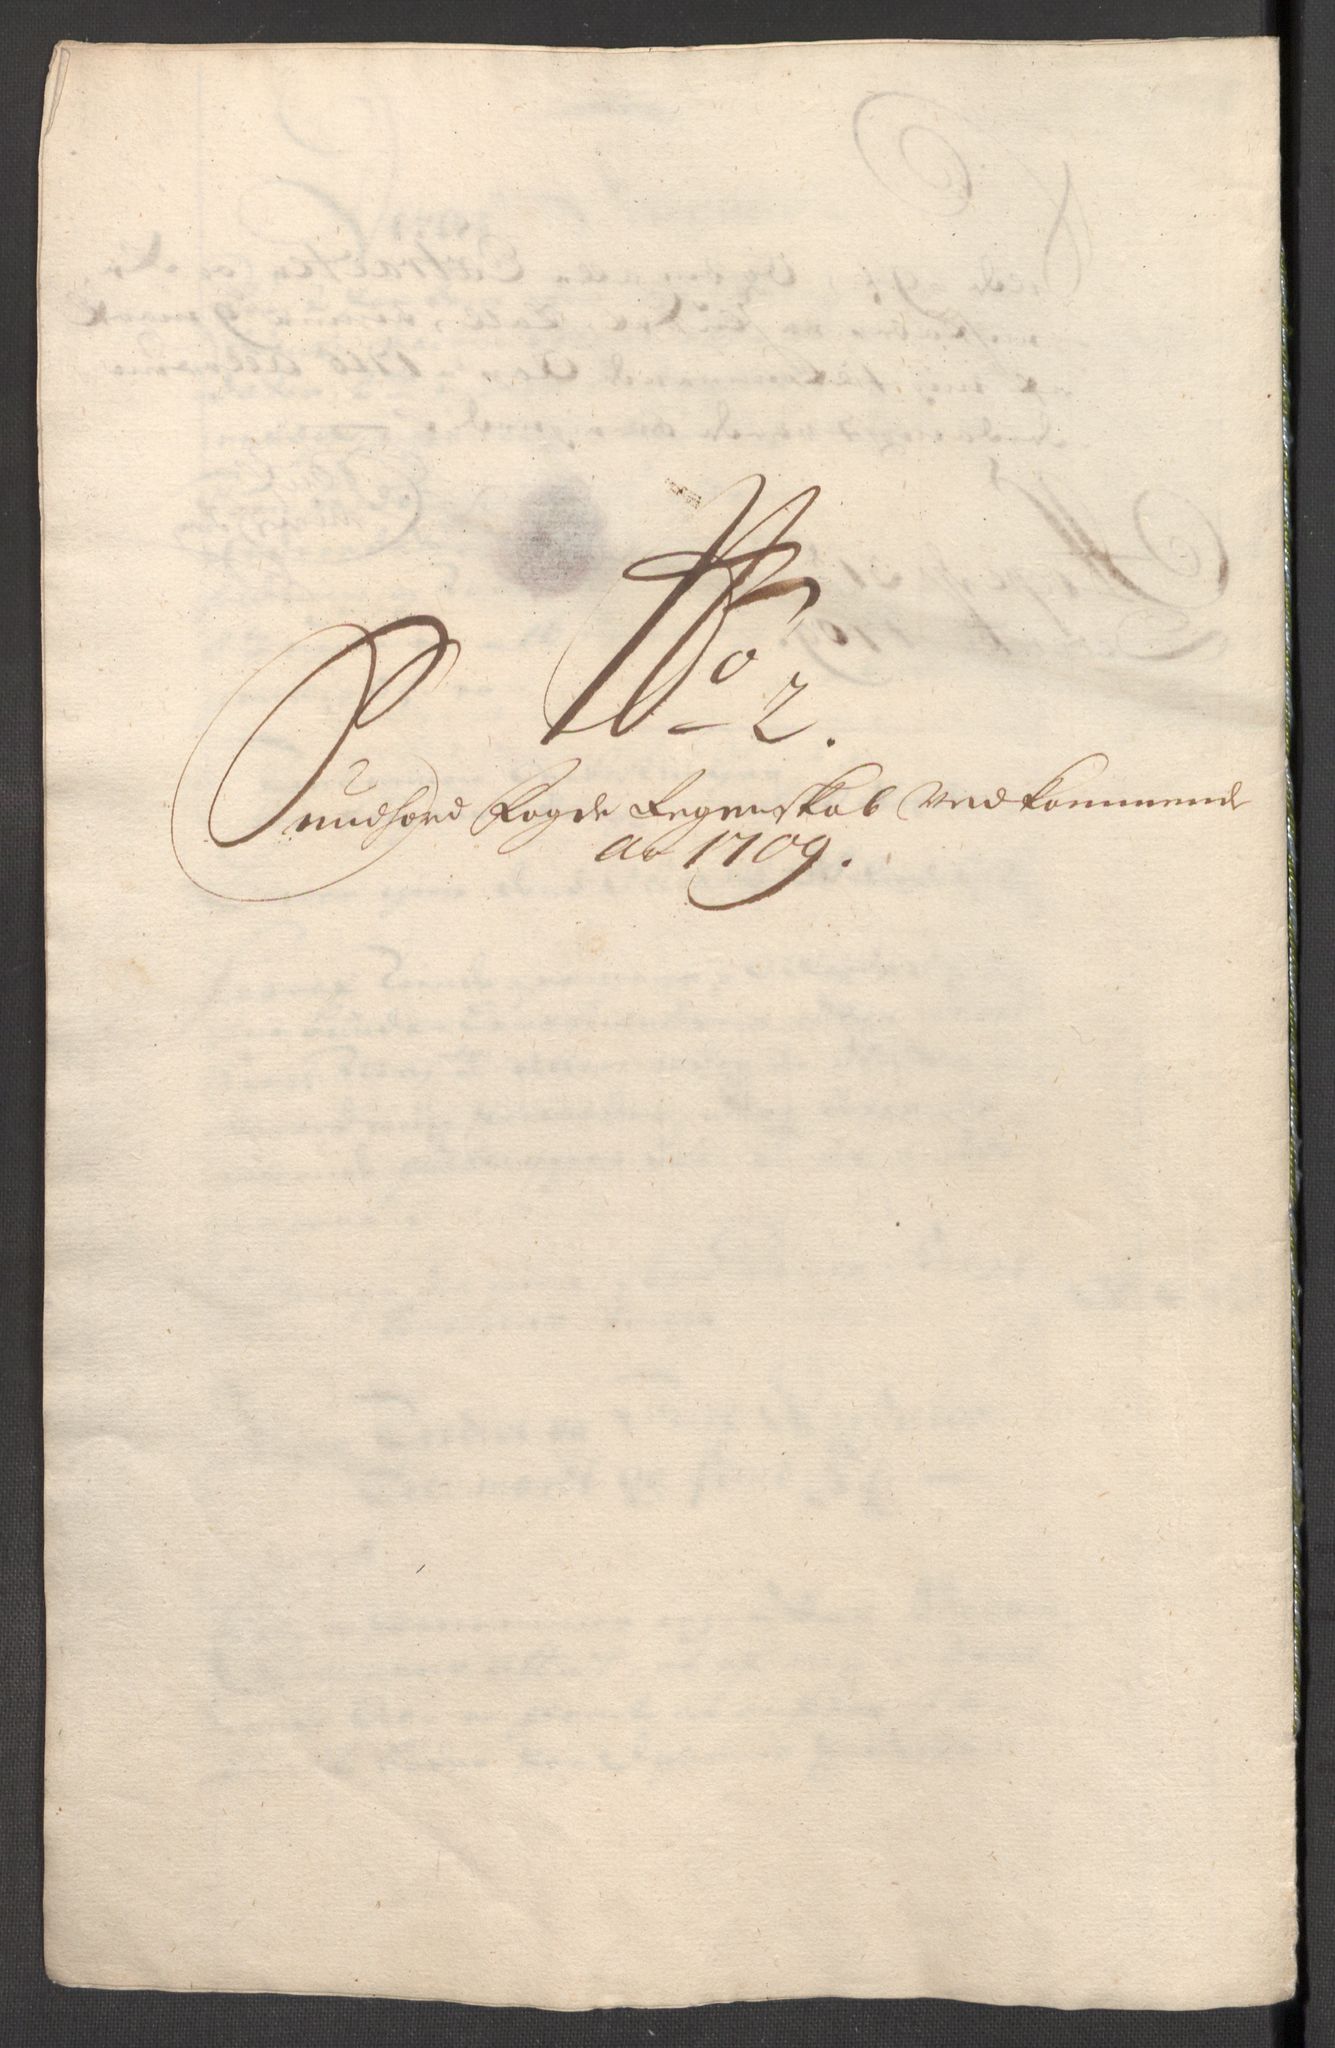 No 2.
Sundhord Fogde Regenskab Vedkommende
Ao 1709.